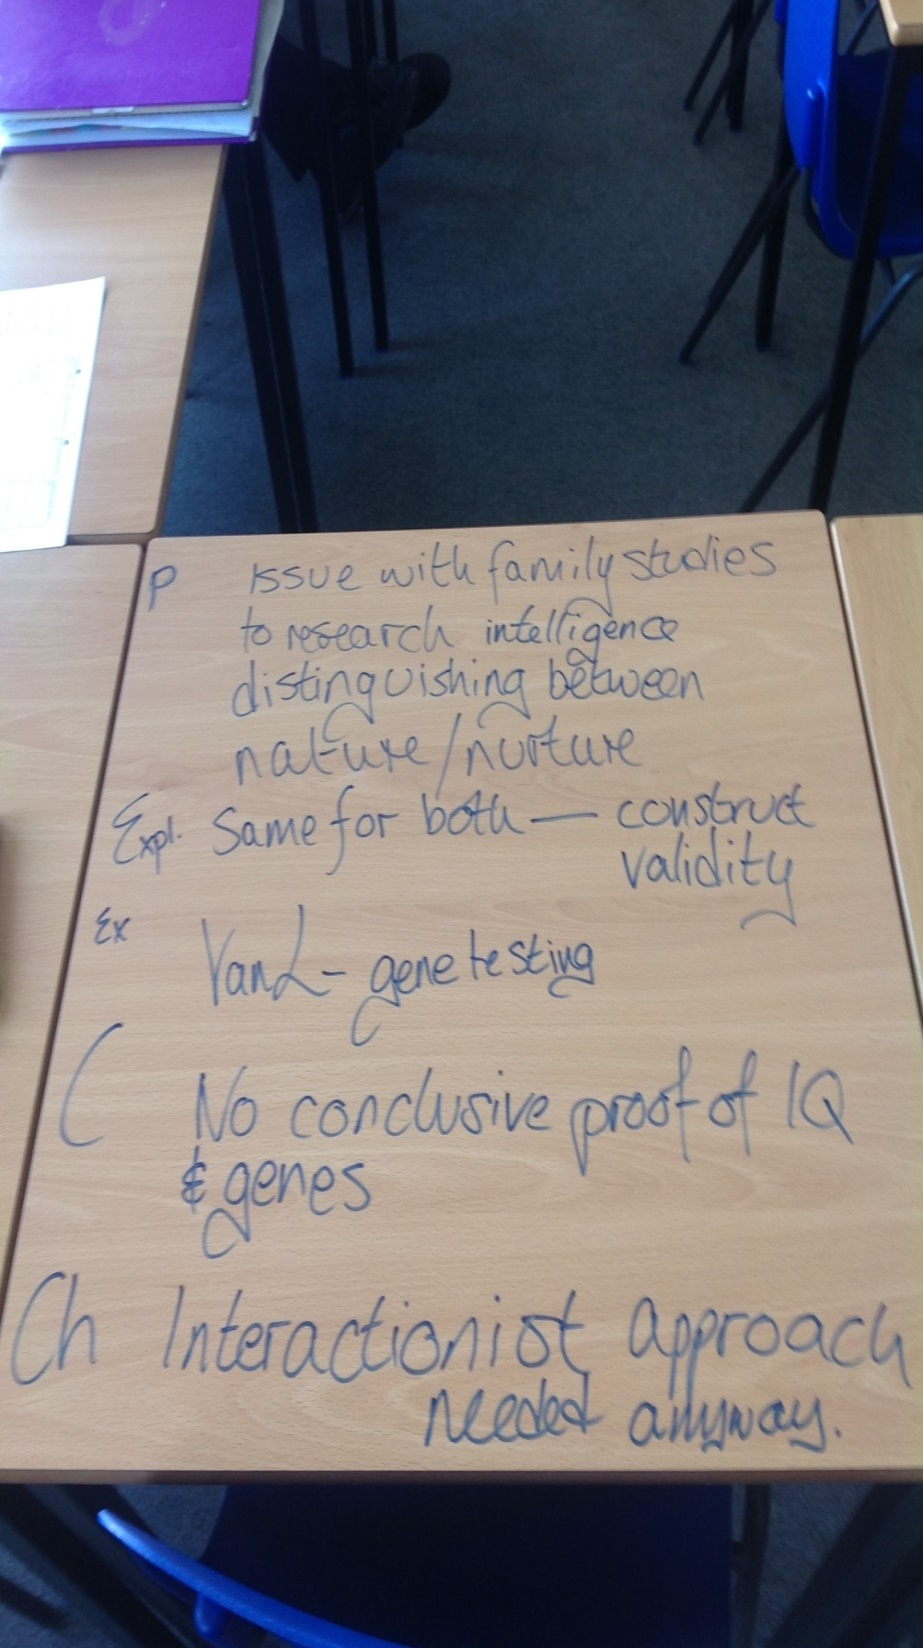 P Issue with family studies
to research intelligence
distinguishing between
nature/nurture
Expl. Same for both — construct
validity
Ex
VanL - gene testing
C No conclusive proof of IQ
& genes
Ch Interactionist approach
needed anyway.